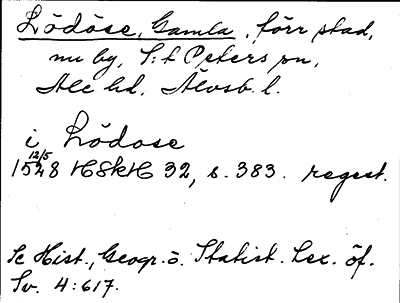 Lödöse, Gamla, förr stad,
nu by, S:t Peters sn,
Ale hd, Älvsb. l.
i Lödose
12/5
1528 HSkH 32, s. 383. regest.
Se Hist., Geogr. ö. Statist. Lex. öf.
Sv. 4:617.